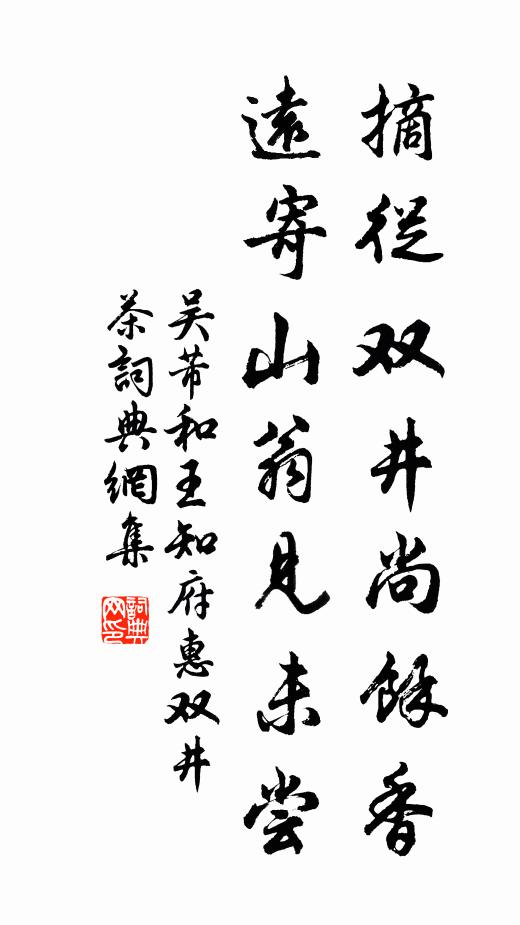 摘從双井尚餘香
遠寄山翁見未尝
吴芾和王知府惠双井
茶詞典網集
詞典网印